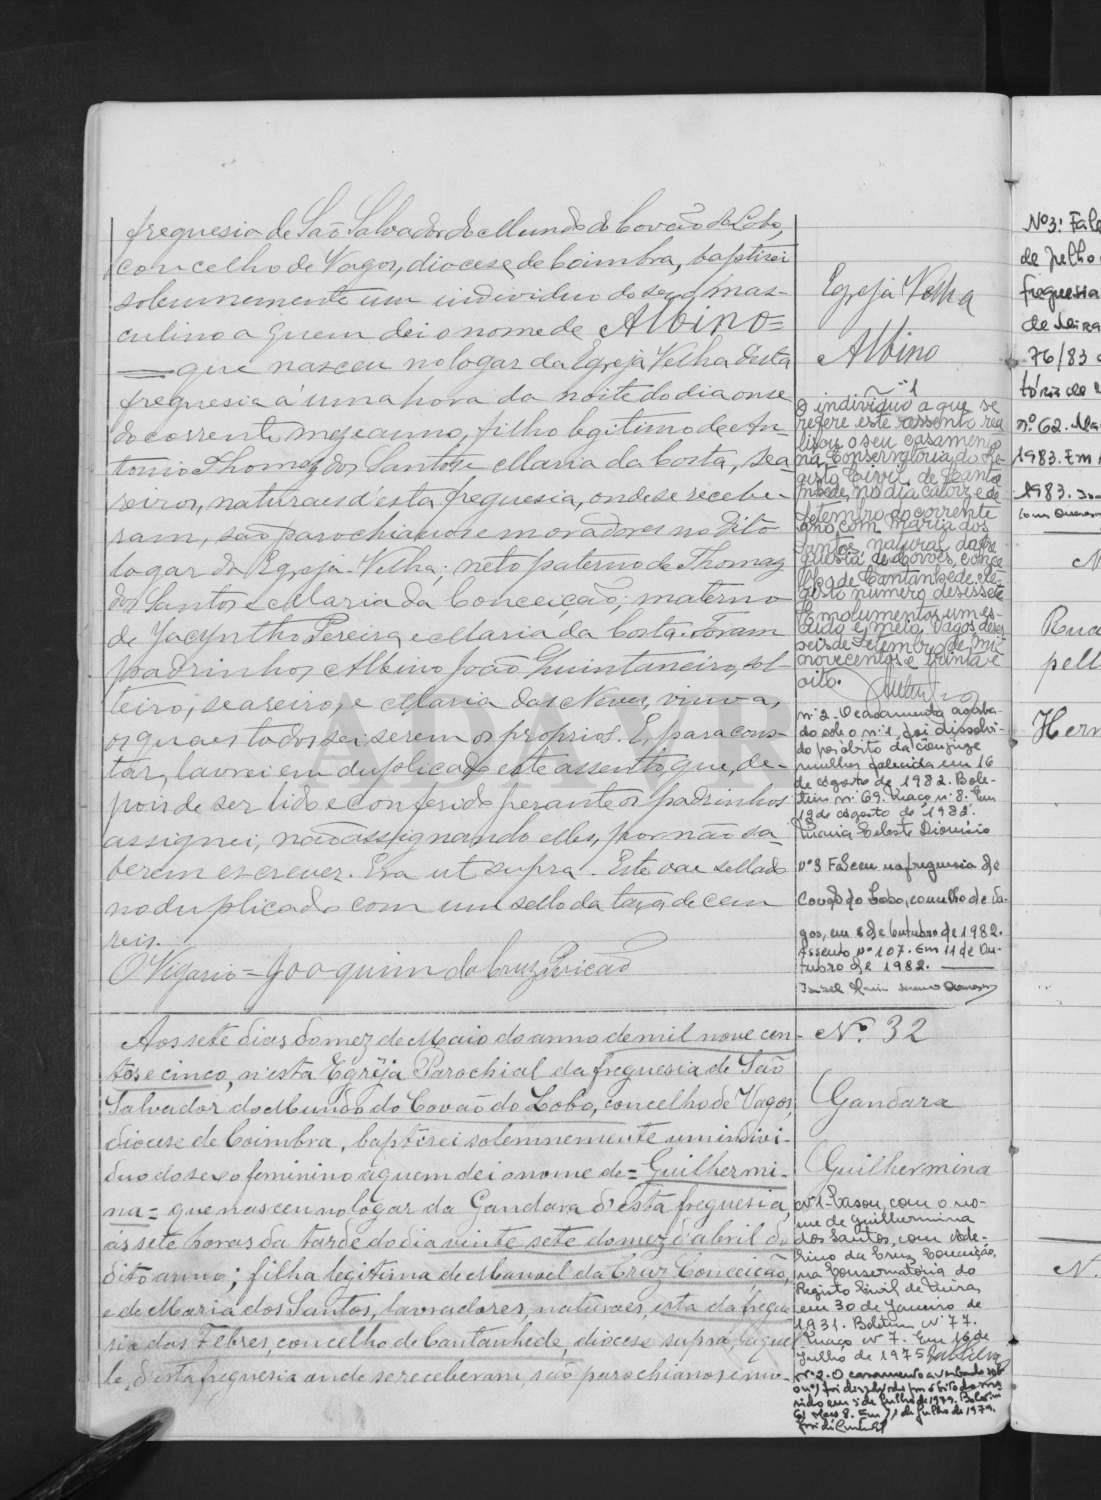 freguesia de São Salvador do Mundo do Covão do Lobo,
concelho de Vagos, diocese de Coimbra, baptisei
solemnemente um individuo do sexo mas-
culino a quem dei o nome de Albino=
que nasceu no logar da Egreja Velha d'esta
freguesia á uma hora da noite do dia onse
do corrente mez e anno, filho legitimo de An-
tonio Thomaz dos Santos e Maria da Costa, sea-
reiros, naturaes d'esta freguesia, onde se recebe-
ram, são parochianos e moradores no dito
logar da Egreja Velha; neto paterno de Thomaz
dos Santos e Maria da Conceição; materno
de Jacyntho Pereira e Maria da Costa. Foram
padrinhos Albino João Quintaneiro, sol
teiro, seareiro, e Maria das Neves, viuva,
os quaes todos sei serem os proprios. E, para cons-
tar, lavrei em duplicado este assento, que, de-
pois de ser lido e conferido perante os padrinhos
assignei, não assignando elles, por não sa-
berem escrever. Era ut supra. Este vae sellado
no duplicado com um sello da taxa de cem
reis.
O Vigario = Joaquim da Cruz
Egreja Velha
Albino
nº 1
O individuo a que se
refere este assento rea
lisou o seu casamento
na Conservatória do Re-
gisto Civil de Canta
nhede, no dia catorze de
Setembro do corrente
ano, com Maria dos
Santos, natural da fre
guesia de conce
lho de Cantanhede. Re-
gisto número dezassete
Emolumentos um es-
cudo e meio. Vagos, dezas
seis de Setembro de mil
novecentos e trinta e
oito.
nº 2 - O casamento averba-
do sob o nº 1, foi dissolvi-
do por óbito da conjuge
mulher falecida em 16
de Agosto de 1982. Bole-
tim nº 69. Maço nº 8. Em
de Agosto de 1982.
Maria Celeste Dionísio
nº 3 Faleceu na freguesia de
Covão do Lobo, concelho de Va-
gos, em 8 de Outubro de 1982.
Assento nº 107. Em 11 de Ou-
tubro de 1982.
Aos sete dias do mez de Maio do anno de mil nove cen-
tos e cinco, n'esta Egreja Parochial da freguesia de São
Salvador do Mundo do Covão do Lobo, concelho de Vagos,
diocese de Coimbra, baptisei solemnemente um indivi-
duo do sexo feminino a quem dei o nome de = Guilhermi-
na = que nasceu no logar da Gandara d'esta freguesia,
ás sete horas da tarde do dia vinte sete do mez d'abril do
dito anno; filha legitima de Manoel da Cruz Conceição,
e de Maria dos Santos, lavradores, naturaes, esta da fregue
sia das Febres, concelho de Cantanhede, diocese supra, aquel
le, d'esta freguesia onde se receberam, são parochianos e mo-
Nº 32
Gandara
Guilhermina
Nº 1 - Casou, com o no-
me de Guilhermina
dos Santos, com
da Cruz Conceição,
na Conservatória do
Registo Civil de Mira,
em 30 de Janeiro de
1931. Boletim Nº 77.
Maço Nº 7. Em 16 de
Julho de 1975
Nº 2. O casamento averbado sob
o nº 1 foi dissolvido por óbito do ma
rido em 5 de Julho de 1979. Boletim
Maço 8. Em 11 de Julho de 1979.
Nº 3: Fale
de Julho
freguesia
de
76/83
tório de
nº 62. Ma
1983. Em
1983.
N
Rua
pell
Hern
N.
ADAVR